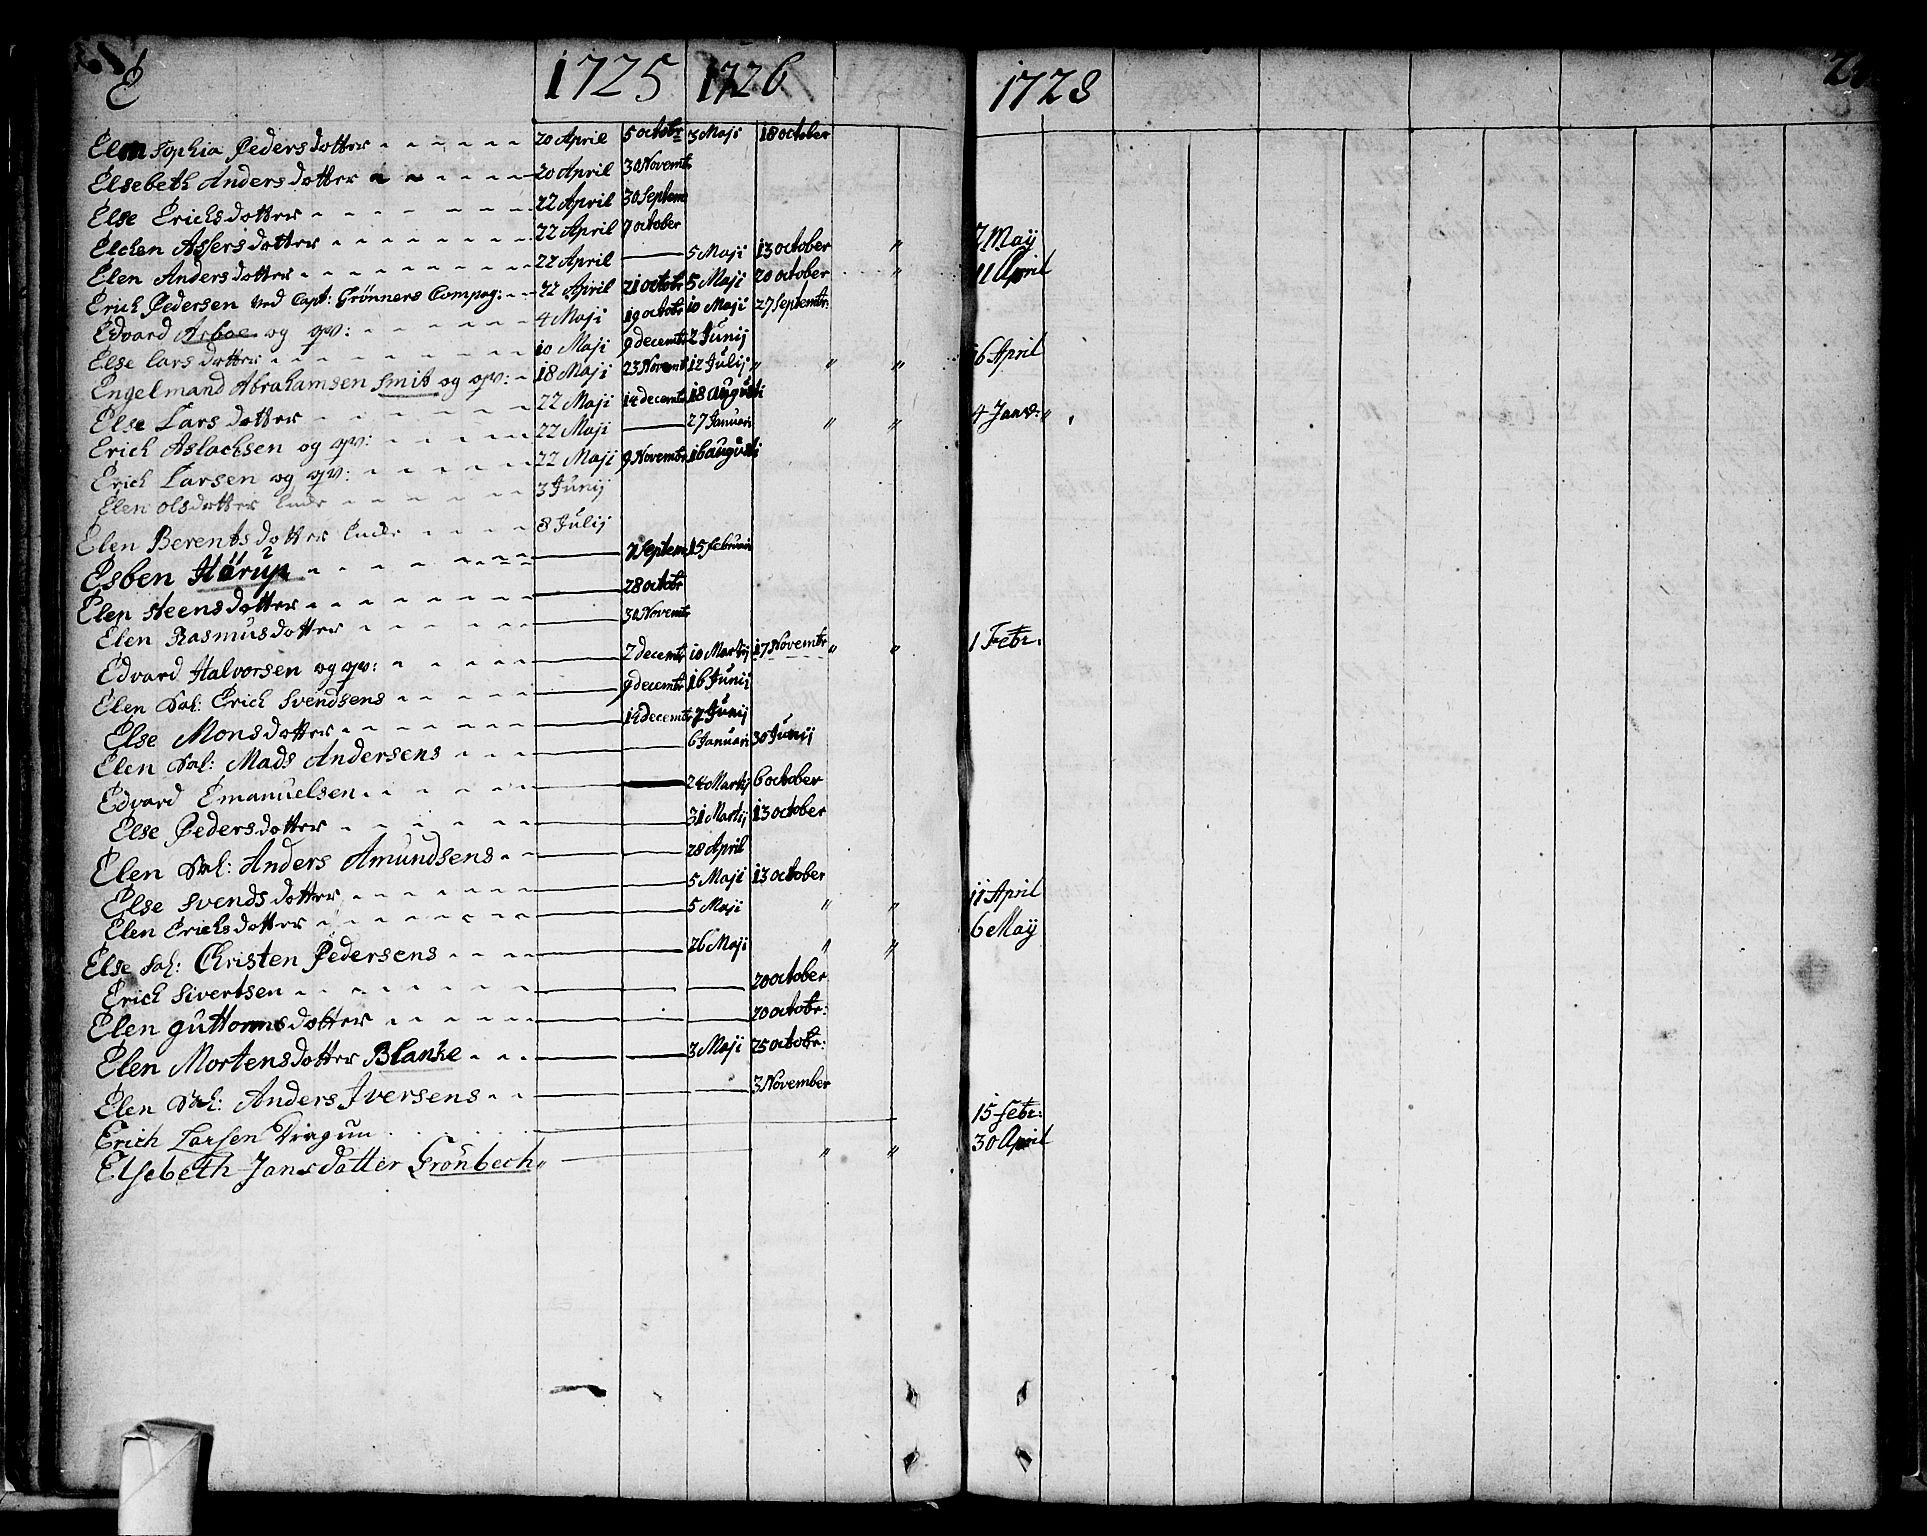 E 1725 1726 1728
Elen Sophia Pedersdotter 20 April 5 octobr 3 Maji 18 october
Elsebeth Andersdotter 20 April 30 Novembr
Else Erichsdotter 22 April 30 Septem
Elchen Assersdotter 22 April 7 october
Elen Andersdotter 22 April — 5 Maji 13 october " 7 Maÿ
Erich Pedersen ved Capt: Grönners Compag: 22 April 21 octobr 5 Maji 20 october " 11 April
Edvard Arboe og qv: 4 Maji 19 octobr 10 Maji 27 Septembr:
Else Larsdotter 10 Maji 9 decembr 2 Junij
Engelmand Abrahamsen Smit og qv: 18 Maji 23 Novemb 12 Julij " " " 6 April
Else Larsdotter 22 Maji 14 decemb 18 augusti
Erich Aslachsen og qv: 22 Maji — 27 Januari " " 4 Janv:
Erich Larsen og qv: 22 Maji 9 Novembr 16 augusti
Elen olsdotter Lude 3 Junij
Elen Berentsdotter Lude 8 Julij
Esben Hörup — 7 Septem 15 februari
Elen Steensdotter — 28 octobr
Elen Rasmusdotter — 30 Novembr
Edvard Halvorsen og qv: — 2 decembr 10 Martij 17 Novembr " " 1 Febr:
Elen Sal: Erich Svendsens — 9 decembr 16 Junij
Else Monsdotter — 14 decembr 7 Junij
Elen Sal: Mads Andersens — — 6 Januari 30 Junij
Edvard Emanuelsen — — 24 Martij 6 october
Else Pedersdotter — — 31 Martij 13 october
Elen Sal: Anders Amundsens — — 28 April
Else Svendsdotter — — 5 Maji 13 october 11 April
Elen Erichsdotter — — 5 Maji " " 6 Maÿ
Else Sal: Christen Pedersens — — 26 Maji " "
Erich Sivertsen — — — 20 october
Elen guttormsdotter — — — 20 octobr:
Elen Mortensdotter Blanke — — 3 Maji 25 octobr:
Elen Sal: Anders Iversens — — — 3 November
Erich Larsen Dragun — 15 febr:
Elsebeth Jansdatter Grönbech " — " " 30 April